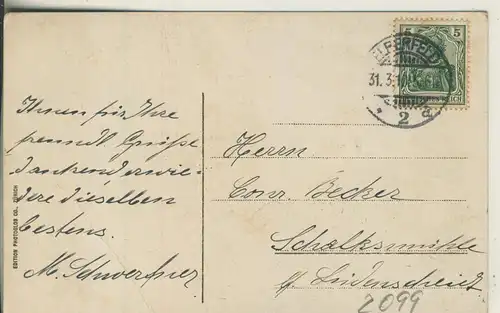 Ihnen für Ihre
freundl. Grüße
dankend erwie-
dere dieselben
bestens.
M.
Herrn
Conr. Becker
Schalksmühle
b/ Lüdenscheid
2099
EDITION PHOTOGLOB CO., ZÜRICH
5 5
ELBERFELD
31.3.
2 d
REICH